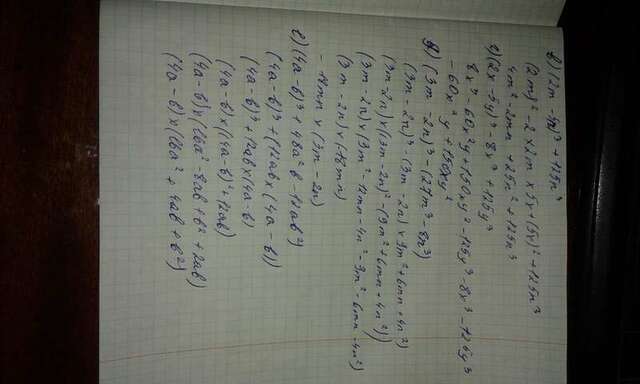 в) (2m - 5y)³ + 125n³
(2m)² - 2 × 2m × 5y + (5y)² + 125n³
4m² - 2mn + 25n² + 125n³
г) (2x - 5y)³ - 8x³ + 125y³
8x³ - 60x²y + 150xy² - 125y³ - 8x³ - 125y³
- 60x²y + 150xy²
д) (3m - 2n)³ - (27m³ - 8n³)
(3m - 2n)³ - (3m - 2n) × 3m² + 6mn + 4n²)
(3m - 2n) × ((3m - 2n)² - (3m² + 6mn + 4n²))
(3m - 2n) × (3m² - 12mn - 4n² - 3m² - 6mn - 4n²)
(3m - 2n) × (-18mn)
- 18mn × (3m - 2n)
е) (4a - b)³ + 48a²b - 12ab²)
(4a - b)³ + (12ab × (4a - b))
(4a - b)³ + 12ab × (4a - b)
(4a - b) × ((4a - b)² + 12ab)
(4a - b) × (16a² - 8ab + b² + 12ab)
(4a - b) × (16a² + 4ab + b²)